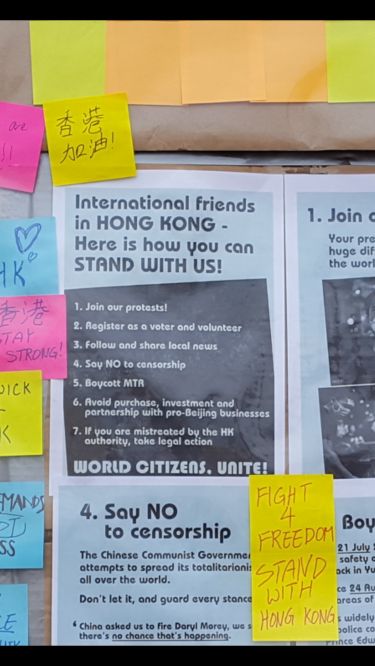 are
香港
加油!
HK
香港
STAY
STRONG!
International friends
in HONG KONG -
Here is how you can
STAND WITH US!
1. Join our protests!
2. Register as a voter and volunteer
3. Follow and share local news
4. Say NO to censorship
5. Boycott MTR
6. Avoid purchase, investment and
partnership with pro-Beijing businesses
7. If you are mistreated by the HK
authority, take legal action
WORLD CITIZENS, UNITE!
1. Join
Your pre
huge dif
the worl
4. Say NO
to censorship
The Chinese Communist Governme
attempts to spread its totalitarianis
all over the world.
Don't let it, and guard every stance
‘ China asked us to fire Daryl Morey, we s
there's no chance that's happening.
FIGHT
4
FREEDOM
STAND
WITH
HONG KONG
Boy
21 July
safety
ck in Yu
ce 24 Au
reas of
widely
police co
Prince Edw